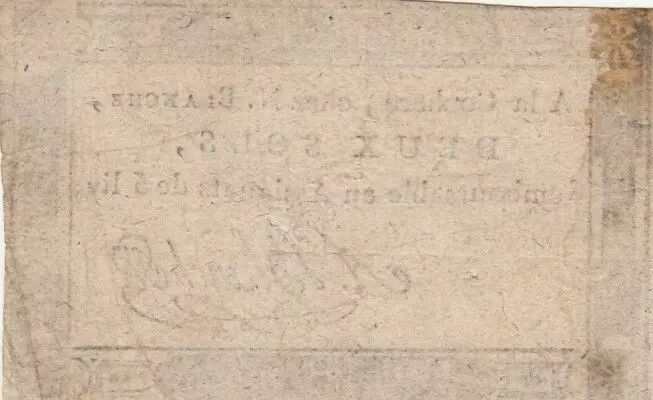 A la chez M. BLANCHE,
DEUX SOLS,
remboursable en Assignats de 5 liv.